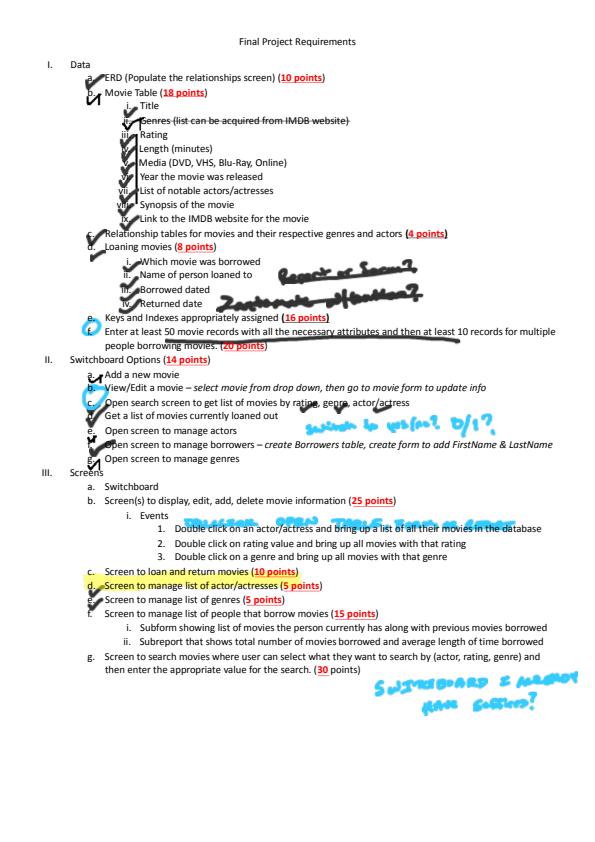 Final Project Requirements
I. Data
a. ERD (Populate the relationships screen) (10 points)
b. Movie Table (18 points)
i. Title
ii. Genres (list can be acquired from IMDB website)
iii. Rating
iv. Length (minutes)
v. Media (DVD, VHS, Blu-Ray, Online)
vi. Year the movie was released
vii. List of notable actors/actresses
viii. Synopsis of the movie
ix. Link to the IMDB website for the movie
c. Relationship tables for movies and their respective genres and actors (4 points)
d. Loaning movies (8 points)
i. Which movie was borrowed
ii. Name of person loaned to
Report or Form?
iii. Borrowed dated
iv. Returned date
e. Keys and Indexes appropriately assigned (16 points)
f. Enter at least 50 movie records with all the necessary attributes and then at least 10 records for multiple
people borrowing movies. (20 points)
II. Switchboard Options (14 points)
a. Add a new movie
b. View/Edit a movie – select movie from drop down, then go to movie form to update info
c. Open search screen to get list of movies by rating, genre, actor/actress
d. Get a list of movies currently loaned out
e. Open screen to manage actors
f. Open screen to manage borrowers – create Borrowers table, create form to add FirstName & LastName
g. Open screen to manage genres
III. Screens
a. Switchboard
b. Screen(s) to display, edit, add, delete movie information (25 points)
i. Events
1. Double click on an actor/actress and bring up a list of all their movies in the database
2. Double click on rating value and bring up all movies with that rating
3. Double click on a genre and bring up all movies with that genre
c. Screen to loan and return movies (10 points)
d. Screen to manage list of actor/actresses (5 points)
e. Screen to manage list of genres (5 points)
f. Screen to manage list of people that borrow movies (15 points)
i. Subform showing list of movies the person currently has along with previous movies borrowed
ii. Subreport that shows total number of movies borrowed and average length of time borrowed
g. Screen to search movies where user can select what they want to search by (actor, rating, genre) and
then enter the appropriate value for the search. (30 points)
SWITCHBOARD I ALREADY
HAVE